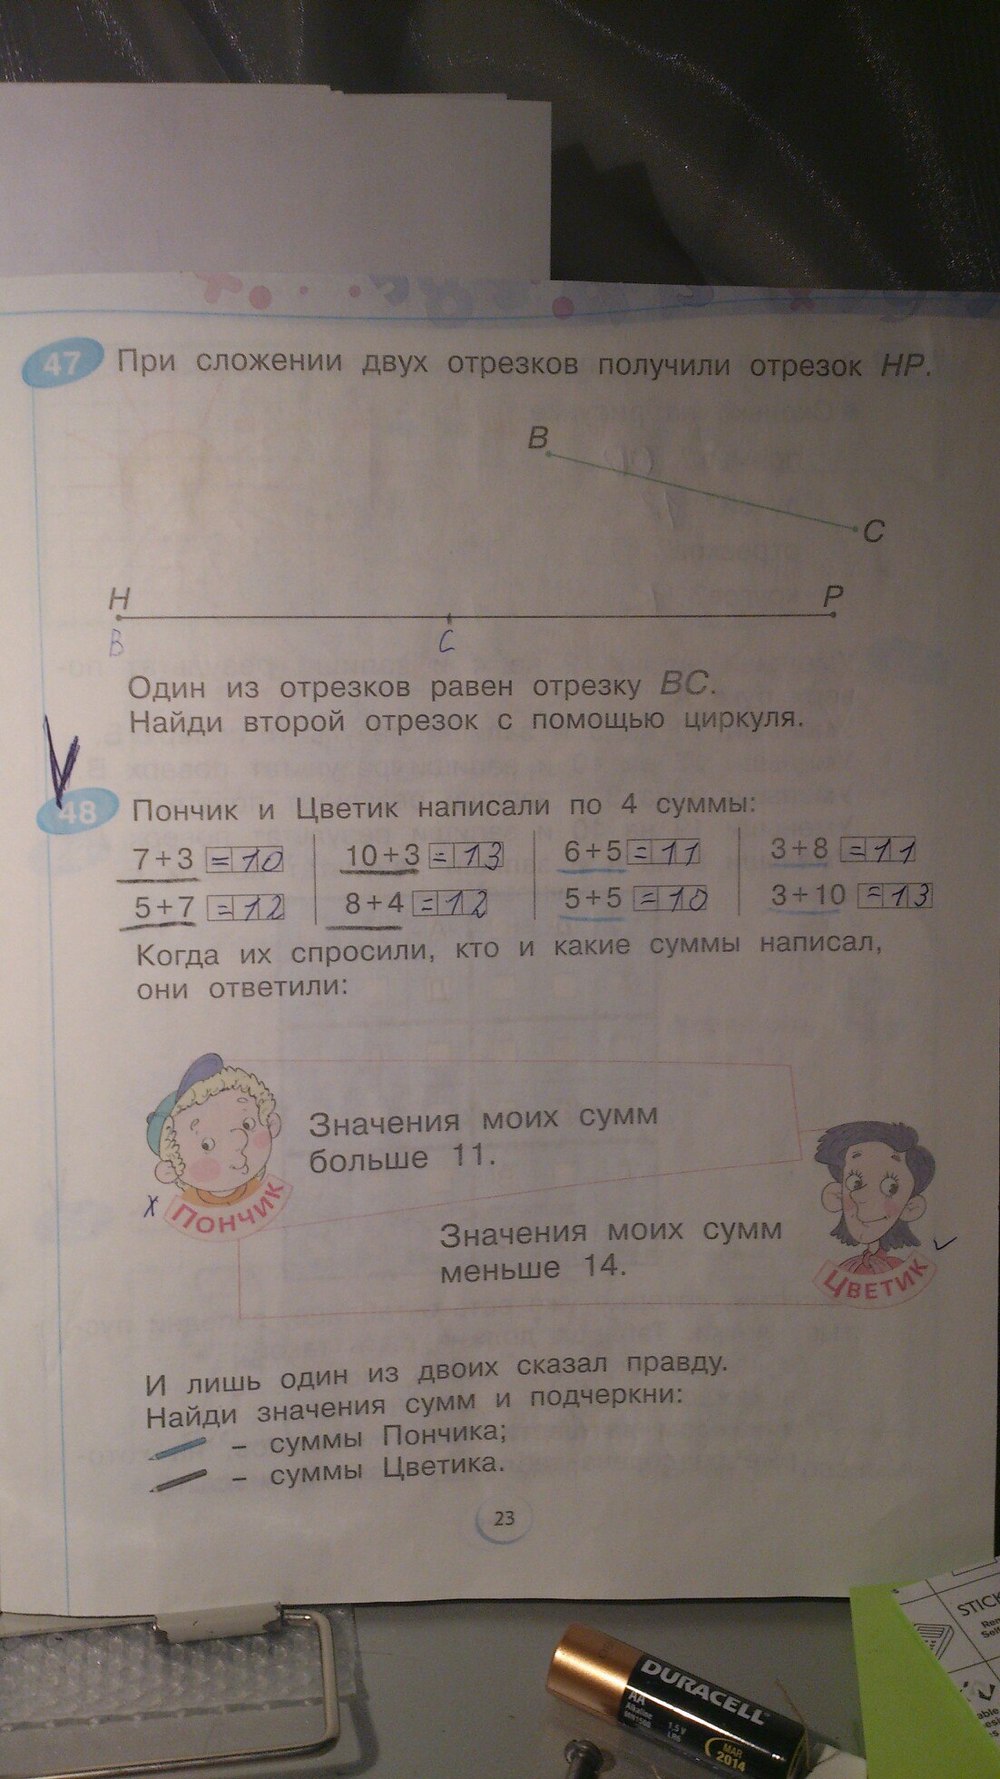 47 При сложении двух отрезков получили отрезок HP.
B
C
H
P
B
C
Один из отрезков равен отрезку BC.
Найди второй отрезок с помощью циркуля.
V
48 Пончик и Цветик написали по 4 суммы:
7+3 =10 10+3 =13 6+5 =11 3+8 =11
5+7 =12 8+4 =12 5+5 =10 3+10 =13
Когда их спросили, кто и какие суммы написал,
они ответили:
Значения моих сумм
больше 11.
x ПОНЧИК
Значения моих сумм
меньше 14.
ЦВЕТИК
И лишь один из двоих сказал правду.
Найди значения сумм и подчеркни:
– суммы Пончика;
– суммы Цветика.
23
STICK
DURACELL
AA
Alkaline
1.5 V
LR6
MAR
2014